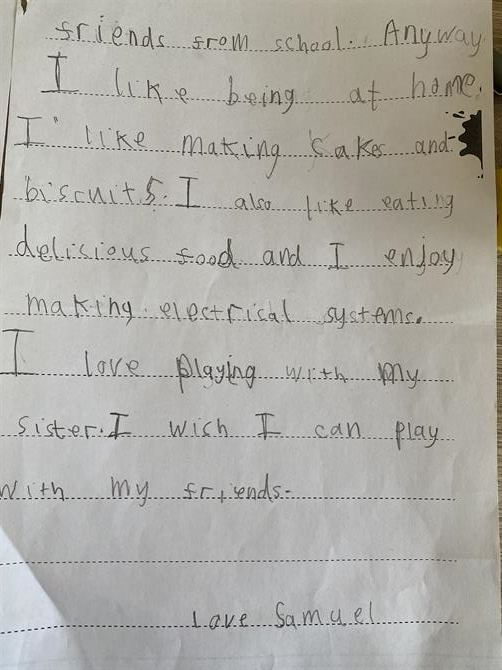 friends from school. Anyway
I like being at home.
I like making cakes and
biscuits. I also like eating
delisious food and I enjoy
making electrical systems.
I love playing with my
sister. I wish I can play
with my friends.
Love Samuel